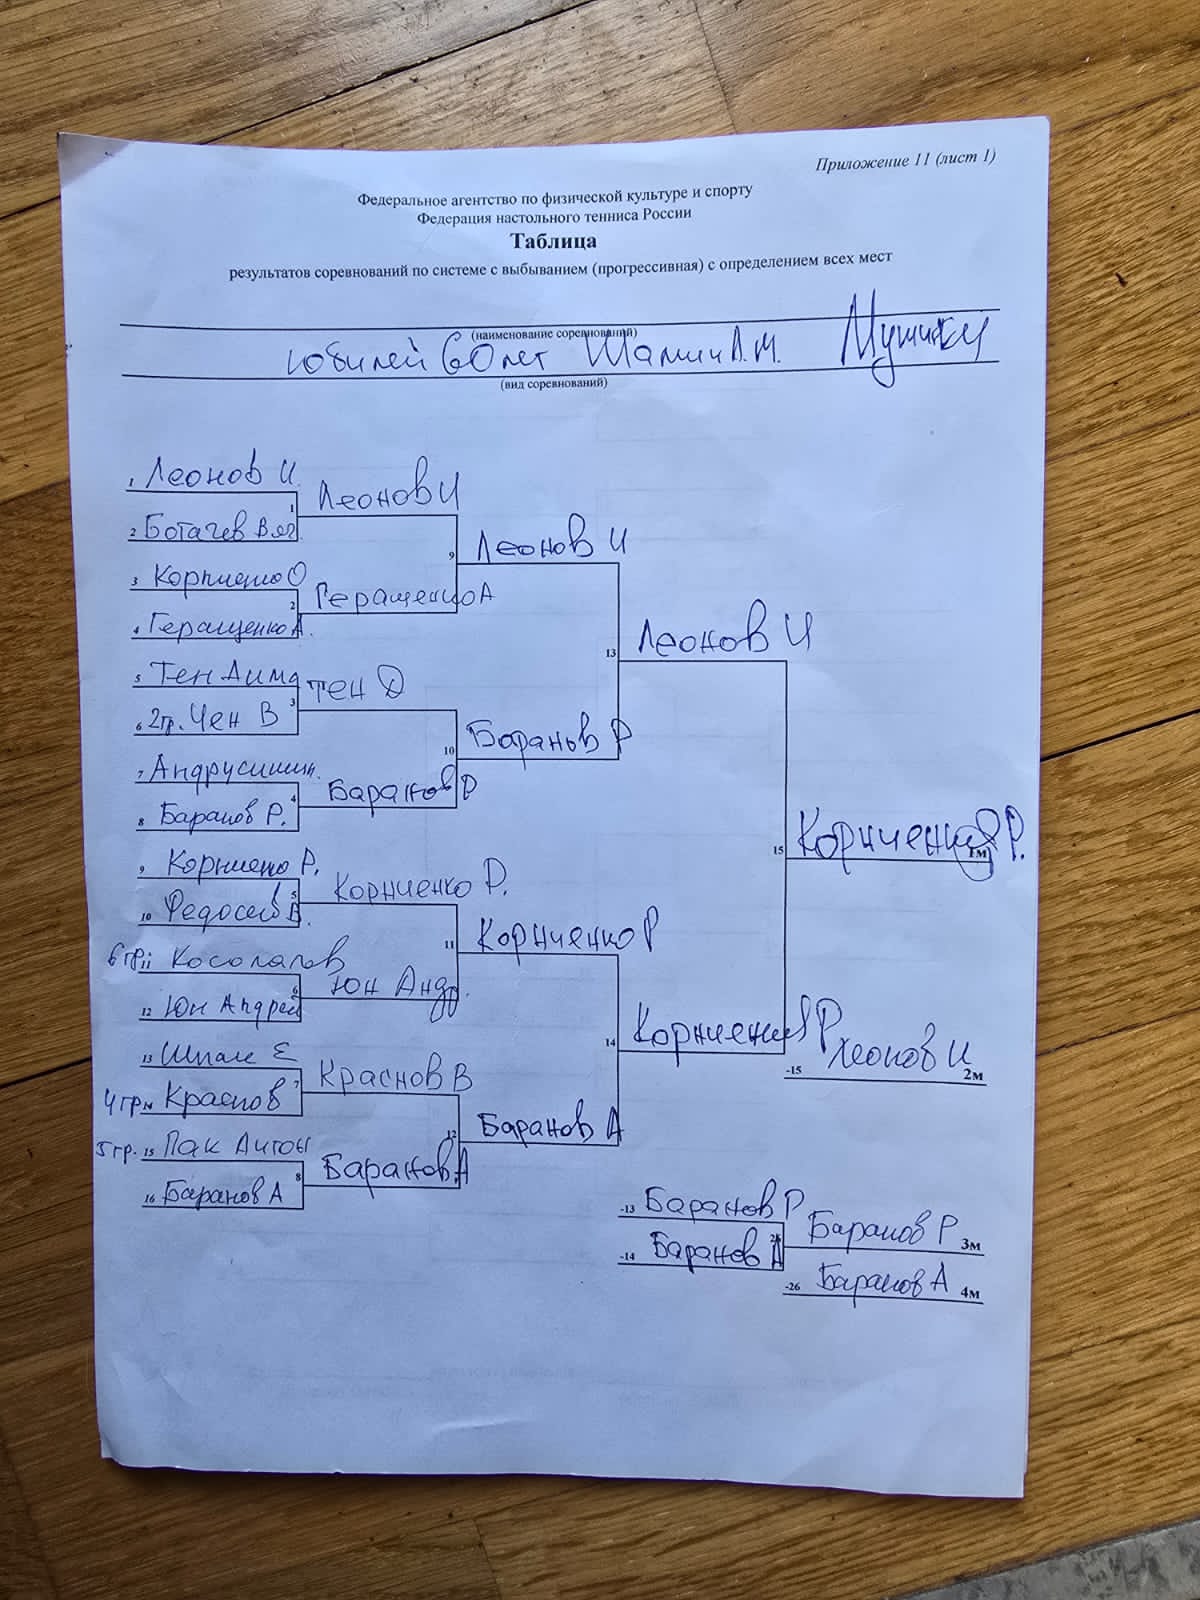 Приложение 11 (лист 1)
Федеральное агентство по физической культуре и спорту
Федерация настольного тенниса России
Таблица
результатов соревнований по системе с выбыванием (прогрессивная) с определением всех мест
(наименование соревнований)
юбилей 60 лет Шамин А.М. Мущины
(вид соревнований)
1 Леонов И.
1 Леонов И
2 Ботачев Вяч
9 Леонов И
3 Корниенко О
2 Геращенко А
4 Геращенко А.
13 Леонов И
5 Тен Дима
3 Тен Д
6 2гр. Чен В
10 Баранов Р
7 Андрусишин.
4 Баранов Р
8 Баранов Р.
15 Корниенко Р. 1м
9 Корниенко Р.
5 Корниенко Р.
10 Федосеев В.
11 Корниенко Р
6гр 11 Косолапов
6 Юн Андр.
12 Юн Андрей
14 Корниенко Р
-15 Леонов И 2м
13 Шпак Е
7 Краснов В
4гр 14 Краснов
12 Баранов А
5гр. 15 Пак Антон
8 Баранов А
16 Баранов А
-13 Баранов Р
26 Баранов Р 3м
-14 Баранов А
-26 Баранов А 4м